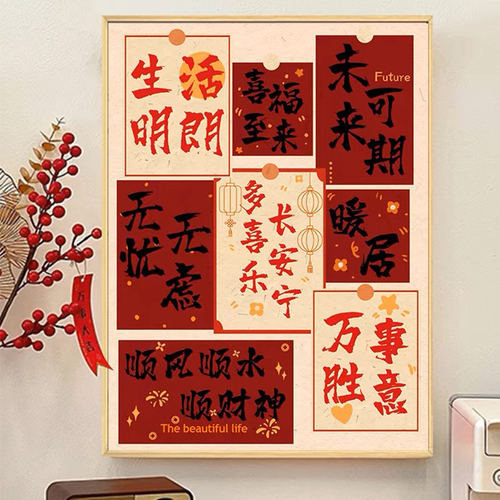 生活
明朗
喜至
福来
未来
Future
可期
无忧
无虑
多喜乐
长安宁
暖居
万事
胜意
顺风顺水
顺财神
The beautiful life
万事大吉